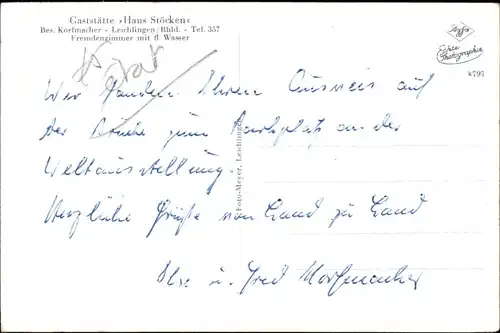 Gaststätte »Haus Stöcken«
Bes. Korfmacher - Leichlingen/Rhld. - Tel. 357
Fremdenzimmer mit fl. Wasser
Agfa
Echte
Photographie
K797
Wir fanden Ihren Ausweis auf
der Brücke zum Parkplatz an der
Weltausstellung.
Herzliche Grüße von Land zu Land
Ilse u. Fred Korfmacher
Foto-Meyer, Leichlingen